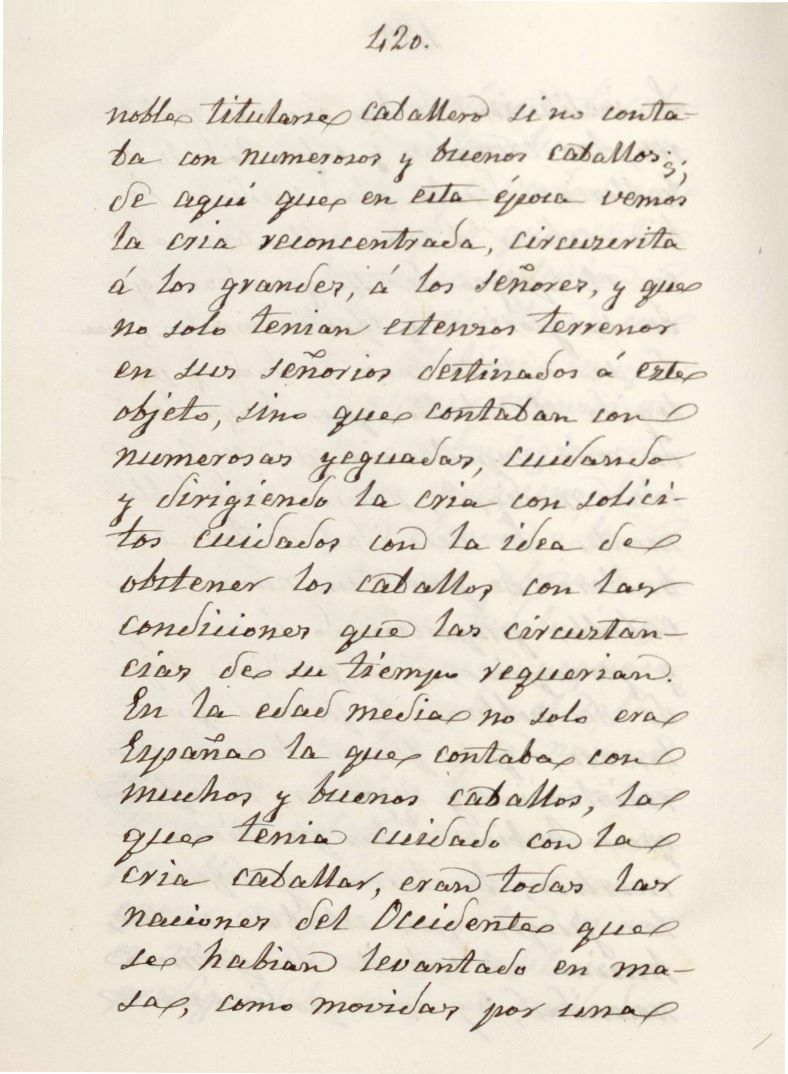 420.
noble titularse caballero sino conta-
ba con numerosos y buenos caballos;
de aquí que en esta época vemos
la cria reconcentrada, circuzcrita
á los grandes, á los señores, y que
no solo tenian estensos terrenos
en sus señorios destinados á este
objeto, sino que contaban con
numerosas yeguadas, cuidando
y dirigiendo la cria con solici-
tos cuidados con la idea de
obstener los caballos con las
condiciones que las circustan-
cias de su tiempo requerian.
En la edad media no solo era
España la que contaba con
muchos y buenos caballos, la
que tenia cuidado con la
cria caballar, eran todas las
naciones del Occidente que
se habian levantado en ma-
sa, como movidas por una